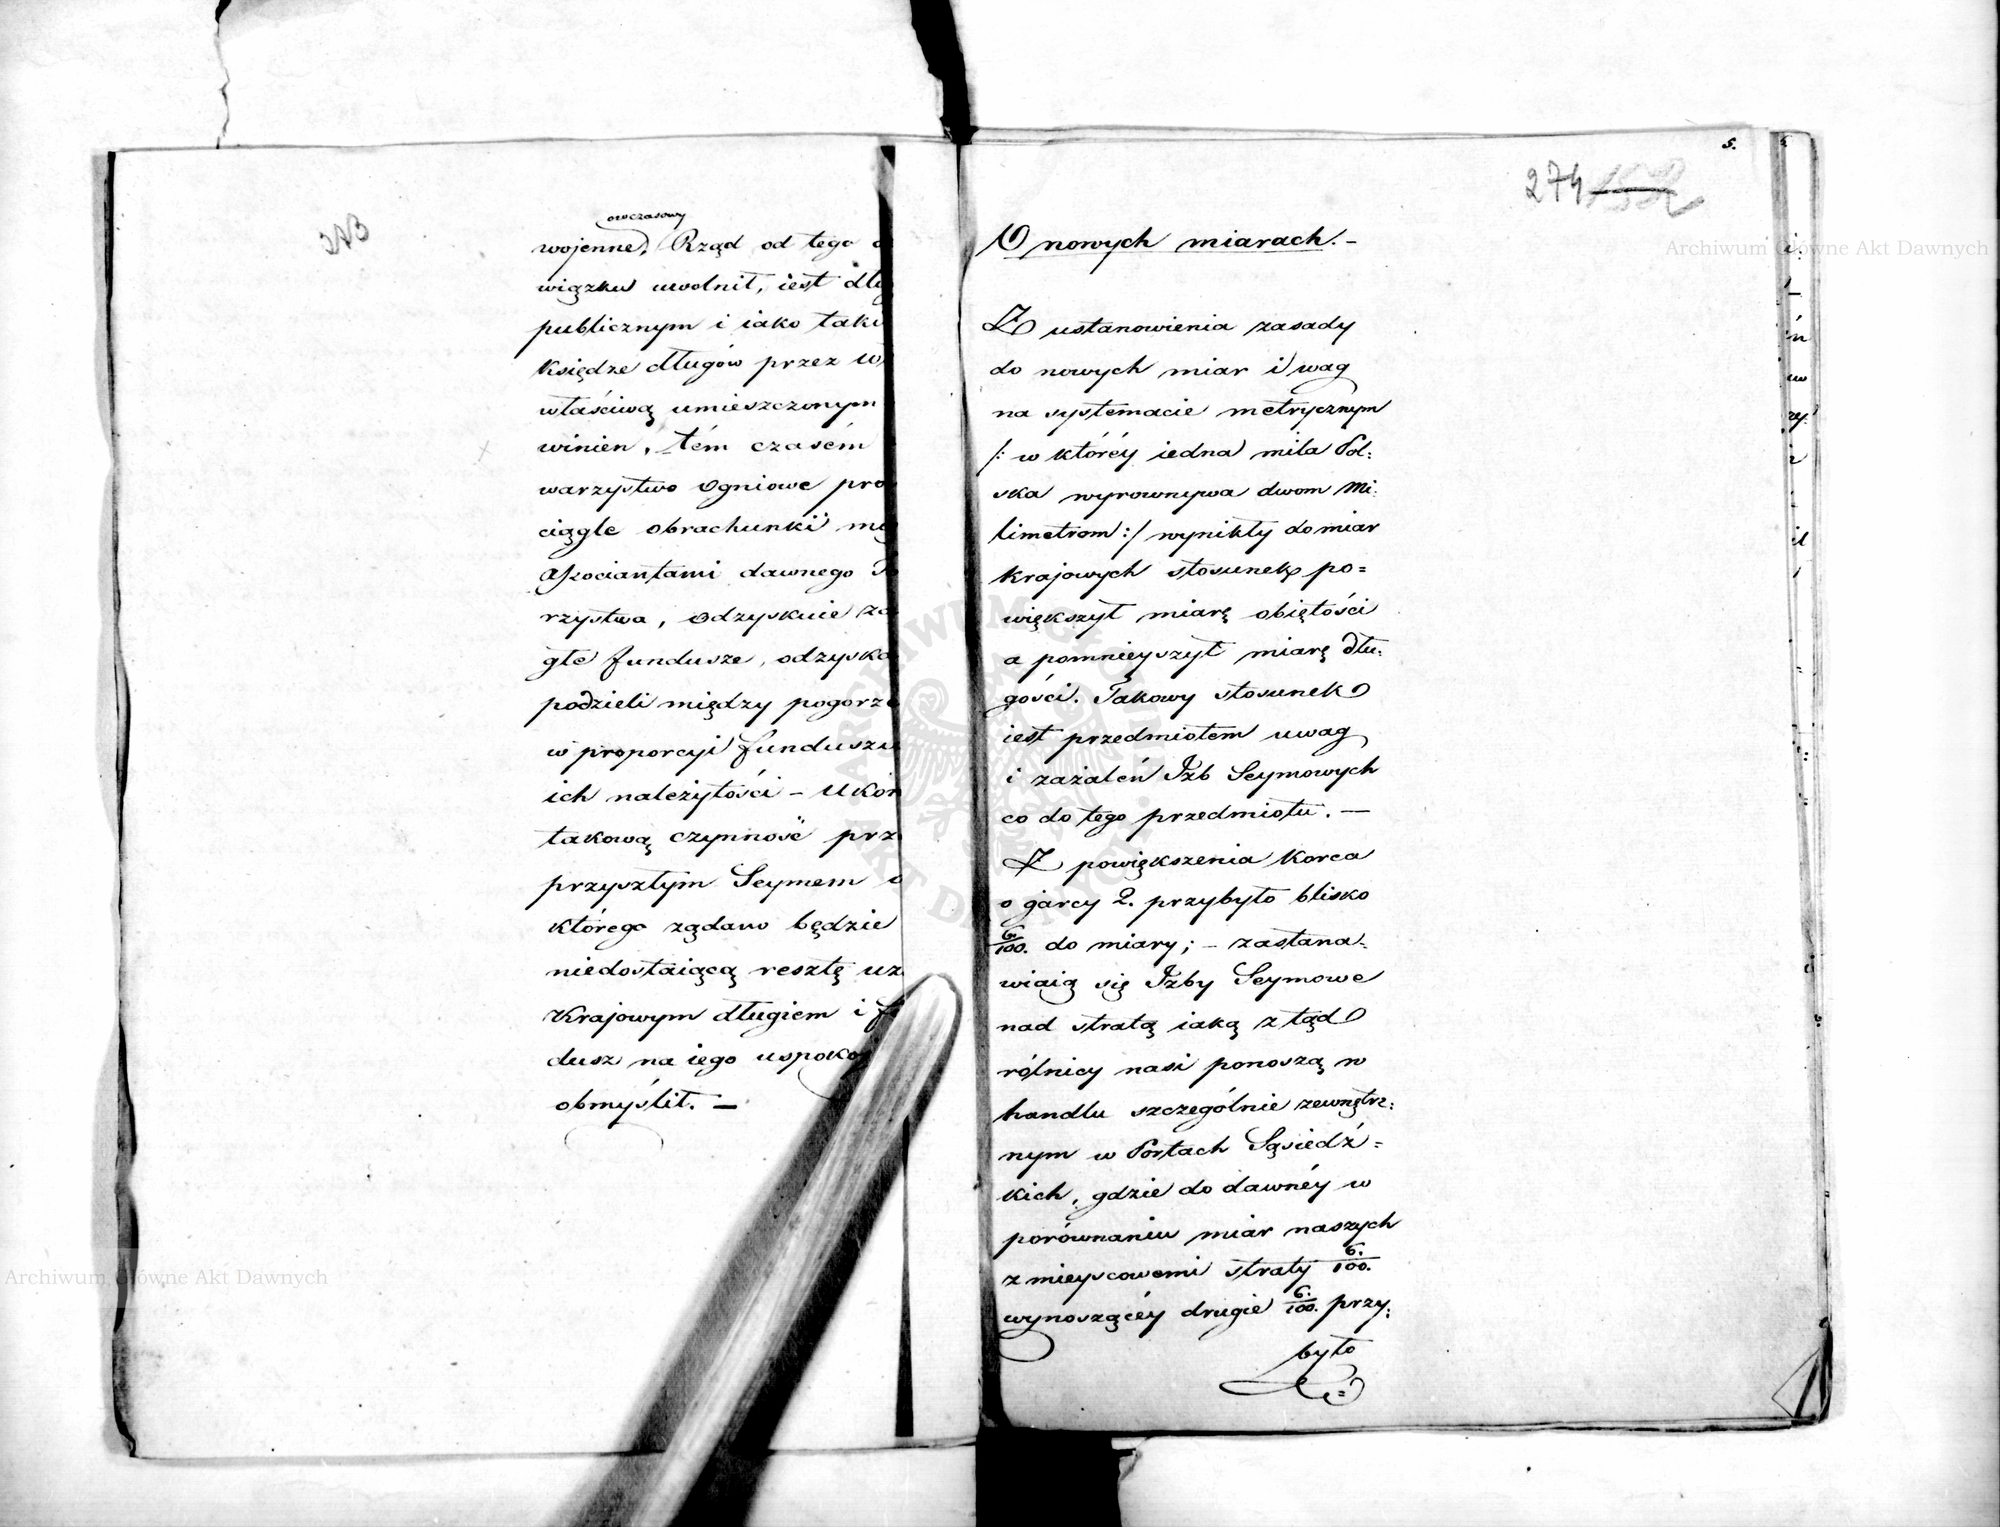 NB
owczasowy
wojenne, Rząd od tego
wiązku uwolnił, iest dłu
publicznym i iako taki
Księdze długów przez w
właściwą umieszczonym
winien, tém czasém
warzystwo Ogniowe pro
ciągle obrachunki mię
Associantami dawnego To
rzystwa, odzyskuie za
głe fundusze, odzyska
podzieli między pogorze
w proporcyi funduszu
ich należytości – Ukoń
takową czynność prz
przyszłym Seymem
którego żądano będzie
niedostaiącą resztę uz
Krajowym długiem i fu
dusz na iego uspoko
obmyślił. —
5.
274 152
O nowych miarach. –
Z ustanowienia zasady
do nowych miar i wag
na systemacie metrycznym
/: w któréy iedna mila Pol:
ska wyrownywa dwom Mi:
limetrom :/ wynikły do miar
Krajowych stosunek po=
większył miarę obiętości
a pomnieyszył miarę dłu:
gości. Takowy stosunek
iest przedmiotem uwag
i zażaleń Izb Seymowych
co do tego przedmiotu. —
Z powiększenia Korca
o garcy 2. przybyło blisko
6/100. do miary; – zastana:
wiaią się Izby Seymowe
nad stratą iaką z tąd
rólnicy nasi ponoszą w
handlu szczególnie zewnętrz:
nym w Portach Sąsiedz=
kich, gdzie do dawnéy w
porównaniu miar naszych
z mieyscowemi straty 6/100.
wynoszącéy drugie 6/100. przy:
było
Archiwum Główne Akt Dawnych
Archiwum Główne Akt Dawnych